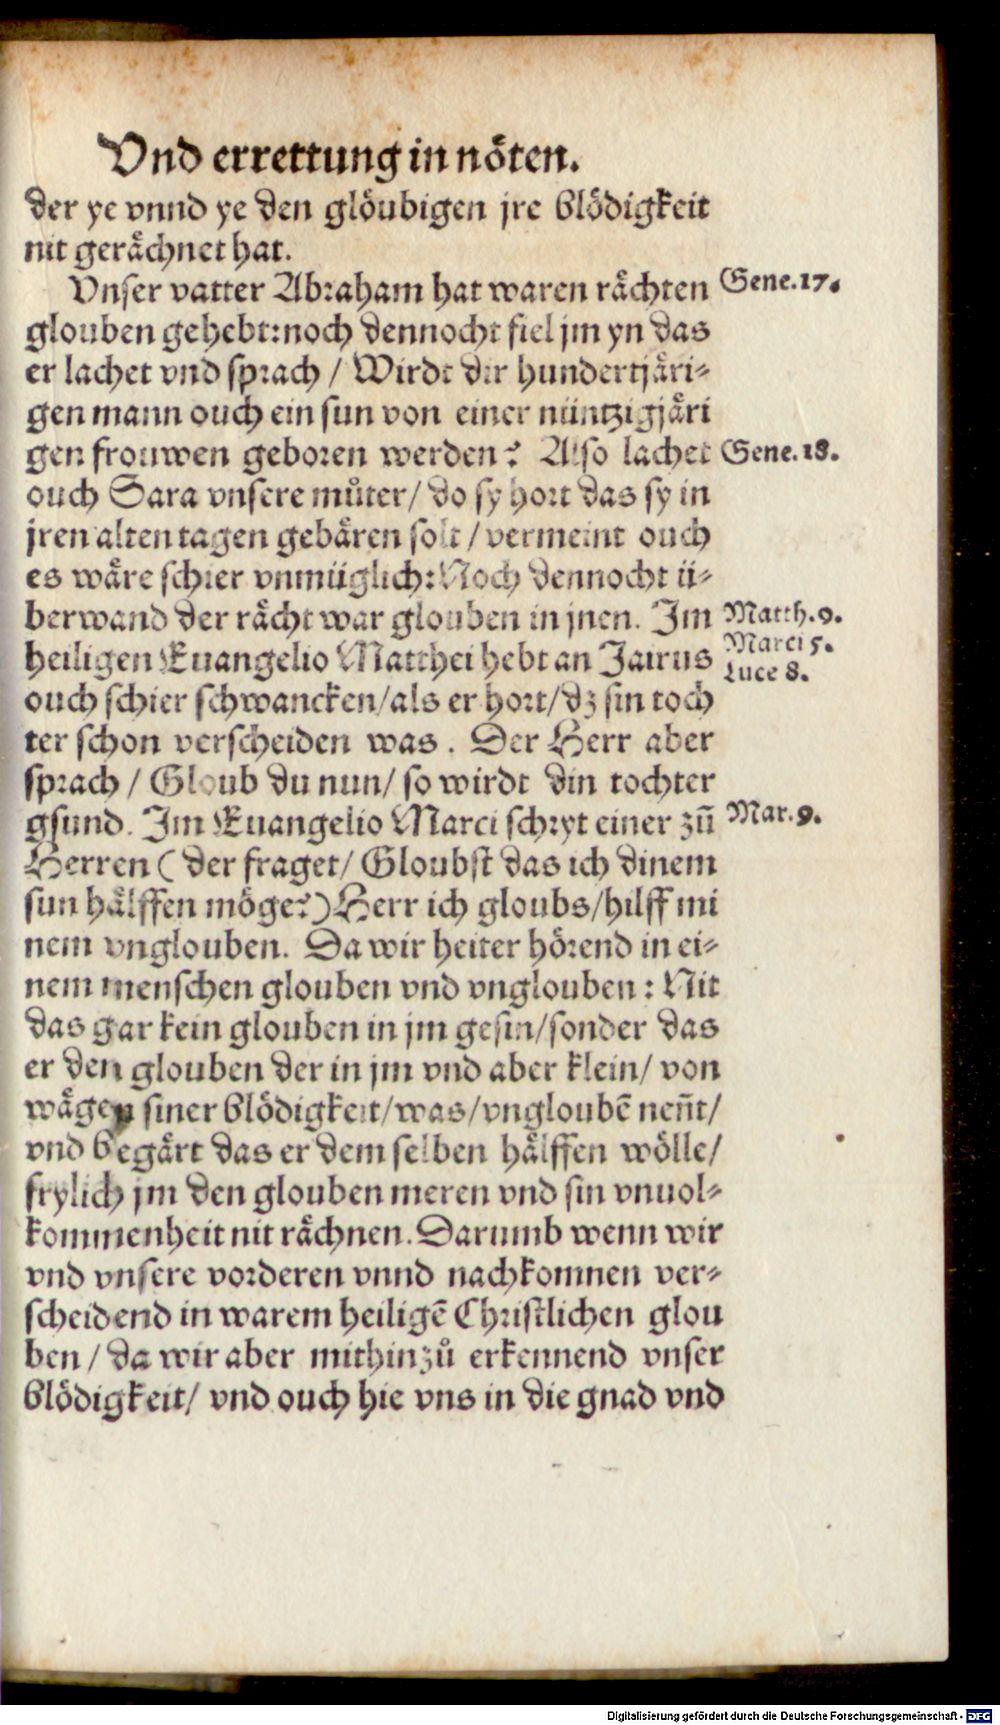 Vnd errettung in nöten.
der ye vnnd ye den glöubigen jre blödigkeit
nit gerächnet hat.
Vnser vatter Abraham hat waren rächten
Gene.17.
glouben gehebt: noch dennocht fiel jm yn das
er lachet vnd sprach / Wirdt dir hundertjäri-
gen mann ouch ein sun von einer nüntzigjäri
gen frouwen geboren werden? Also lachet
Gene.18.
ouch Sara vnsere můter/ do sy hort das sy in
jren alten tagen gebären solt / vermeint ouch
es wäre schier vnmüglich: Noch dennocht ü-
berwand der rächt war glouben in jnen. Im
Matth.9.
heiligen Euangelio Matthei hebt an Jairus
Marci 5.
Luce 8.
ouch schier schwancken/als er hort/dz sin toch
ter schon verscheiden was. Der Herr aber
sprach / Gloub du nun/ so wirdt din tochter
gsund. Im Euangelio Marci schryt einer zů̄
Mar.9.
Herren ( der fraget/ Gloubst das ich dinem
sun hälffen möge?) Herr ich gloubs/hilff mi
nem vnglouben. Da wir heiter hörend in ei-
nem menschen glouben vnd vnglouben: Nit
das gar kein glouben in jm gesin/sonder das
er den glouben der in jm vnd aber klein/ von
wägen siner blödigkeit/was/vngloubē neñt/
vnd begärt das er dem selben hälffen wölle/
frylich jm den glouben meren vnd sin vnuol-
kommenheit nit rächnen. Darumb wenn wir
vnd vnsere vorderen vnnd nachkomnen ver-
scheidend in warem heiligē Christlichen glou
ben / da wir aber mithinzů erkennend vnser
blödigkeit/ vnd ouch hie vns in die gnad vnd
Digitalisierung gefördert durch die Deutsche Forschungsgemeinschaft - DFG